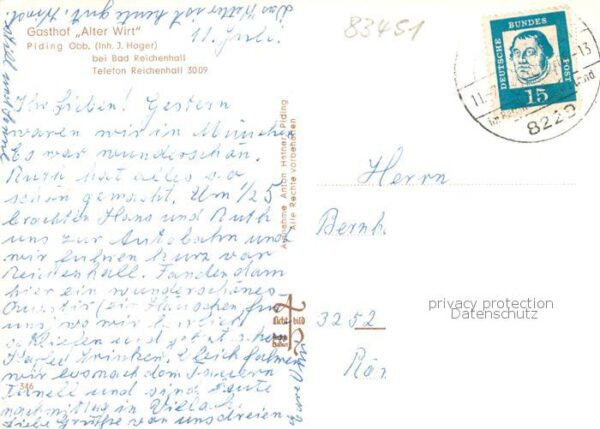 Das Wetter ist heute gut.
Gasthof „Alter Wirt"
Piding Obb. (Inh. J. Hager)
bei Bad Reichenhall
Telefon Reichenhall 3009
11. Juli.
83451
DEUTSCHE BUNDES POST
15
8229
Ihr Lieben! Gestern
waren wir in München
Es war wunderschön.
Ruth hat alles so
schön gemacht. Um 1/2 5
brachten Hans und Ruth
uns zur Autobahn und
wir fuhren kurz vor
Reichenhall. Fanden dann
hier ein wunderschönes
Quartir (ein Häuschen für
uns) wo wir herrlich
schliefen und jetzt
Kaffee trinken. Gleich fahren
wir los nach dem Tauern
Tunell und sind heute
nachmittag in Villach.
Liebe Grüße von uns dreien
Eure
346
Aufnahme Anton Hafner, Piding
Alle Rechte vorbehalten
Herrn
Bernh.
3252
privacy protection
Datenschutz